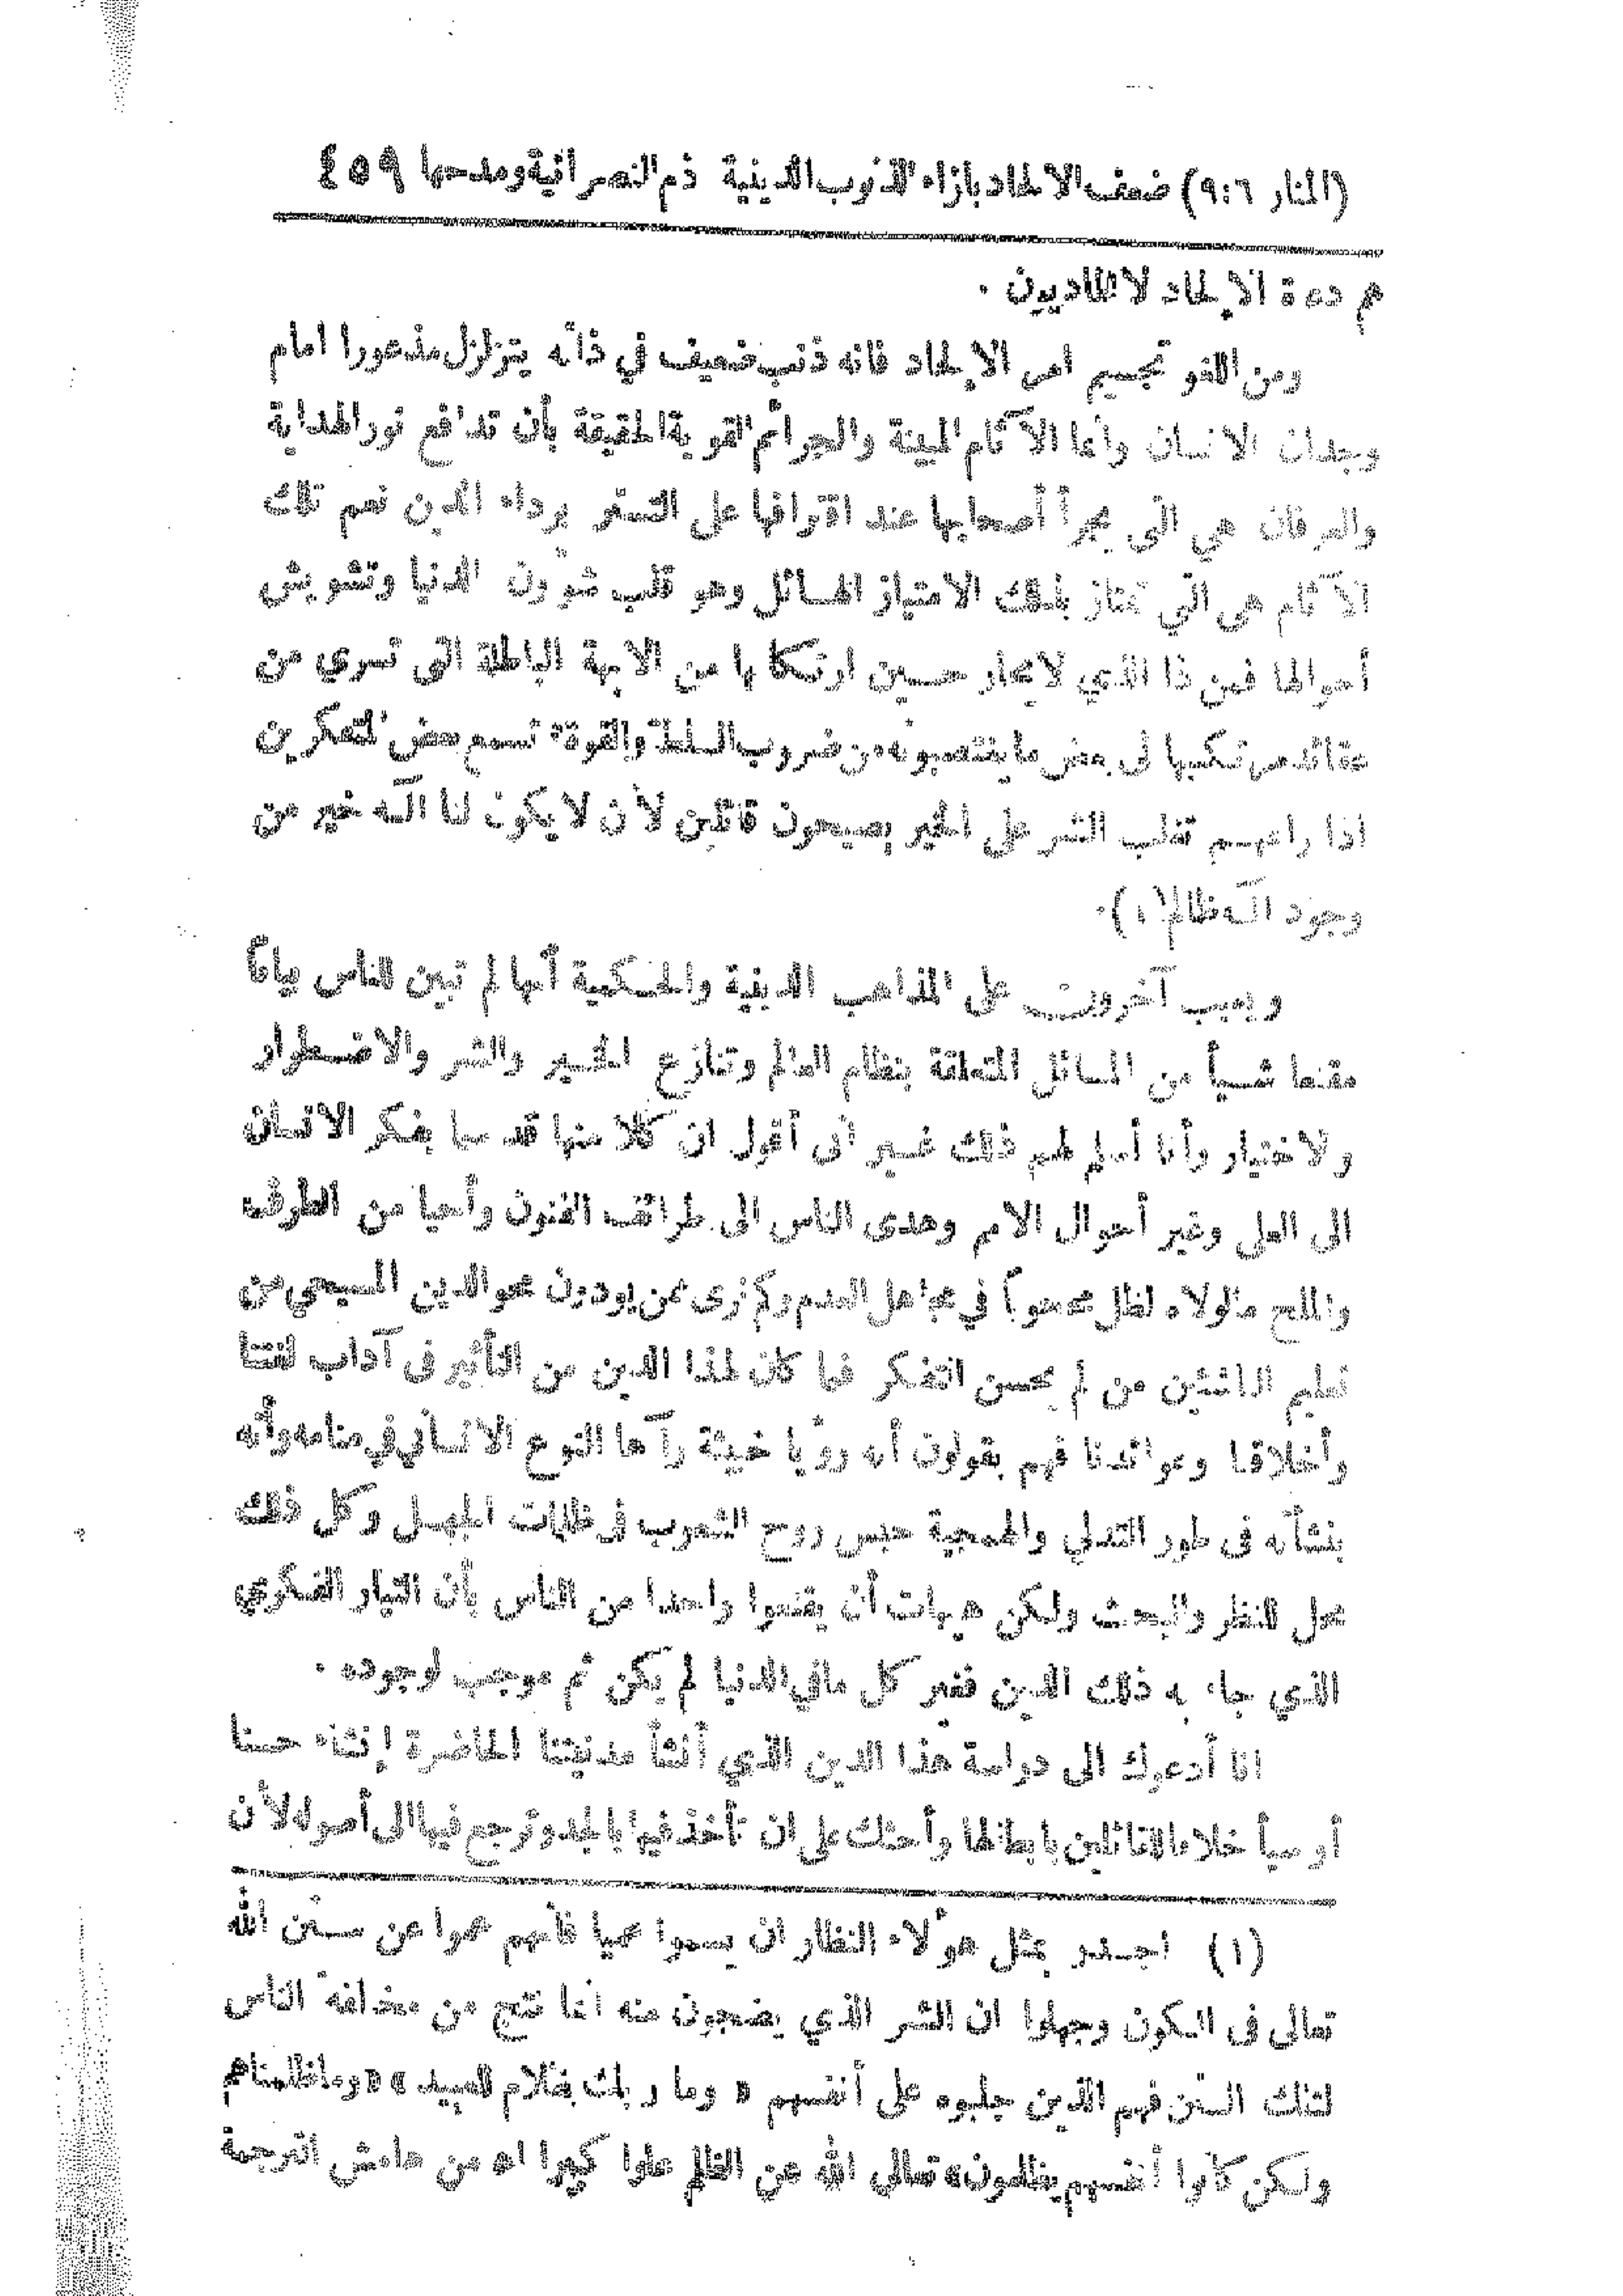 (المنار ٩:٦) ضعف الالحاد بازاء الذنوب الدينية ذم النصرانية ومدحها ٤٥٩
هم دعاة الالحاد لا الماديون .
ومن اللغو تجسيم امر الالحاد فانه ذنب ضعيف في ذاته يتزلزل مذعورا امام
وجدان الانسان وأما الآثام المبينة والجرائم القوية الحقيقة بأن تدافع نور الهداية
والعرفان هي التي يجرأ أصحابها عند اقترافها على التستر برداء الدين نعم تلك
الآثام هي التي تمتاز بذلك الامتياز الهائل وهو قلب شؤون الدنيا وتشويش
أحوالها فمن ذا الذي لا يحار حسين ارتكابها من الابهة الباطلة التي تسري من
عقائد مرتكبيها الى بعض ما يغتصبونه من ضروب السلطة والقوة تسمع بعض المتفكرين
اذا راعهم تغلب الشر على الخير يصيحون قائلين لأن لا يكون لنا آله خير من
وجود آله ظالم(١).
ويعيب آخرون على المذاهب الدينية والحكمية أنها لم تبين للناس بيانا
مقنعا شيأ من المسائل المتعلقة بنظام العالم وتنازع الخير والشر والاضطرار
والاختيار وأنا أسلم لهم ذلك غير أني أقول ان كلا منها قد سما بفكر الانسان
الى العلى وغير أحوال الامم وهدى الناس الى طرائف الفنون وأحيا من الطرف
والملح ما لولاه لظل مدسوسا في مجاهل العدم وكم نرى ممن يودون محو الدين المسيحي من
تعليم الناشئين من لم يحسن التفكر فيما كان لهذا الدين من التأثير في آداب لغتنا
وأخلاقنا وعوائدنا فهم يقولون أنه رؤيا خبيثة رآها النوع الانساني في منامه وأنه
بنشأته في طور التدلي والهمجية حبس روح الشعوب في ظلمات الجهل وكل ذلك
محل للنظر والبحث ولكن هيهات أن يقنعوا واحدا من الناس بأن التيار الفكري
الذي جاء به ذلك الدين فغير كل ما في الدنيا لم يكن ثم موجب لوجوده .
انا أدعوك الى دراسة هذا الدين الذي أنشأ مدنيتنا الحاضرة إنشاء حسنا
أو سيأ خلافا للقائلين بابطالها وأحثك على ان تأخذ فيها بالجد وترجع فيها الى أصوله لأن
(١) اجدر بمثل هؤلاء النظار ان يسموا عميا فأنهم عموا عن سنن الله
تعالى في الكون وجهلوا ان الشر الذي يضجون منه انما نتج من مخالفة الناس
لتلك السنن فهم الذين جلبوه على أنفسهم « وما ربك بظلام للعبيد » « وما ظلمناهم
ولكن كانوا أنفسهم يظلمون » تعالى الله عن الظلم علوا كبيرا اه من هامش الترجمة